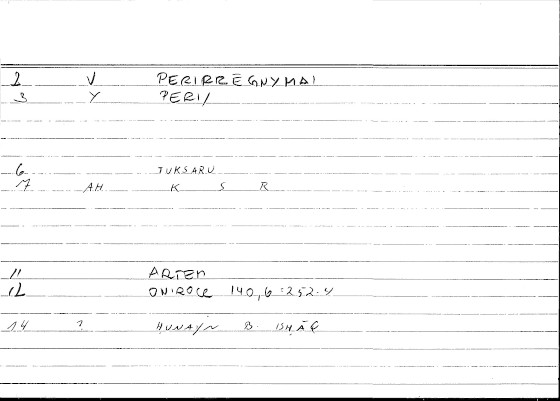 2 V PERIRRĒGNYMAI
3 Y PERI/
6 TUKSARU
7 AH K S R
11 ARTEM
12 ONIROCR 140,6=252.4
14 ? ḤUNAYN B. ISḤĀQ